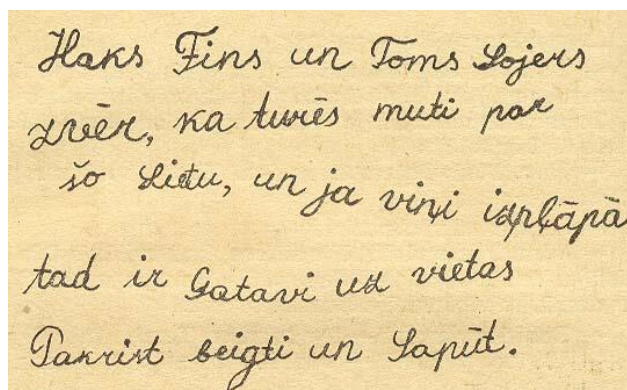 Haks Fins un Toms Sojers
zvēr, ka turēs muti par
šo Lietu, un ja viņi izpļāpā
tad ir Gatavi uz vietas
Pakrist beigti un Sapūt.